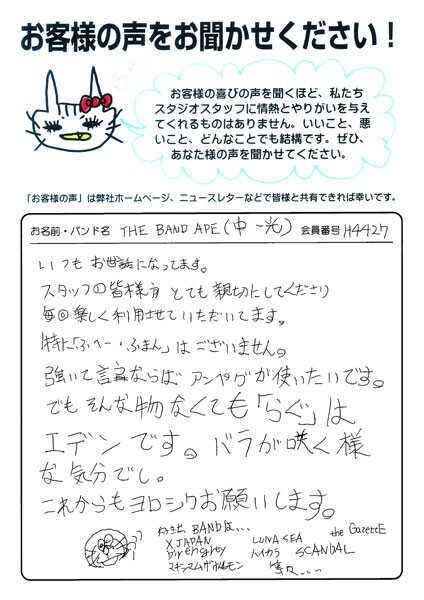 お客様の声をお聞かせください！
お客様の喜びの声を聞くほど、私たち
スタジオスタッフに情熱とやりがいを与え
てくれるものはありません。いいこと、悪
いこと、どんなことでも結構です。ぜひ、
あなた様の声を聞かせてください。
「お客様の声」は弊社ホームページ、ニュースレターなどで皆様と共有できれば幸いです。
お名前・バンド名 THE BAND APE(中一光) 会員番号 H4427
いつもお世話になってます。
スタッフの皆様方とても親切にしてくださり
毎回楽しく利用させていただいてます。
特に「ふへー・ふまん」はございません。
強いて言うならば アンペグが使いたいです。
でもそんな物なくても「らぐ」は
エデンです。バラが咲く様
な気分でし。
これからもヨロシクお願いします。
好きな BANDは...
X JAPAN LUNA SEA the GazettE
Dir en grey ハイカラ SCANDAL
マキシマムザホルモン 等々...